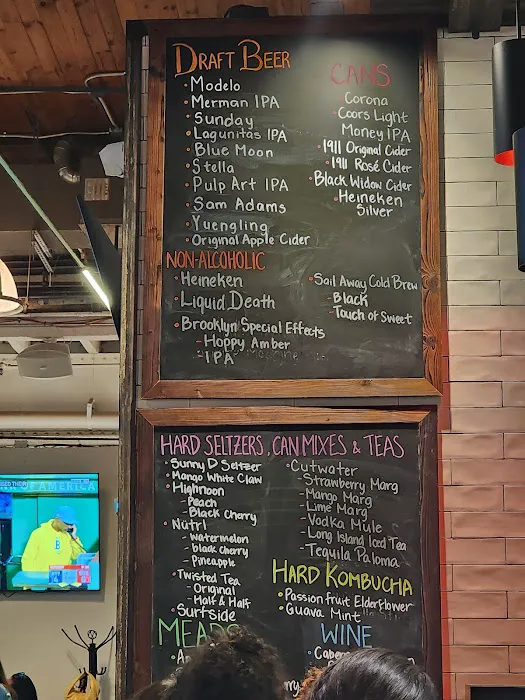 DRAFT BEER
· Modelo
· Merman IPA
· Sunday
· Lagunitas IPA
· Blue Moon
· Stella
· Pulp Art IPA
· Sam Adams
· Yuengling
· Original Apple Cider
CANS
Corona
· Coors Light
Money IPA
· 1911 Original Cider
· 1911 Rosé Cider
· Black Widow Cider
· Heineken
Silver
NON-ALCOHOLIC
· Heineken
· Liquid Death
· Brooklyn Special Effects
- Hoppy Amber
- IPA
· Sail Away Cold Brew
- Black
- Touch of Sweet
HARD SELTZERS, CAN MIXES & TEAS
· Sunny D Seltzer
· Mango White Claw
· Highnoon
- Peach
- Black Cherry
· Nütrl
- Watermelon
- black cherry
- Pineapple
· Twisted Tea
- Original
- Half & Half
· Surfside
· Cutwater
- Strawberry Marg
- Mango Marg
- Lime Marg
- Vodka Mule
- Long Island Iced Tea
- Tequila Paloma
HARD KOMBUCHA
· Passion fruit Elderflower
· Guava Mint
MEADS
WINE
OF AMERICA
B